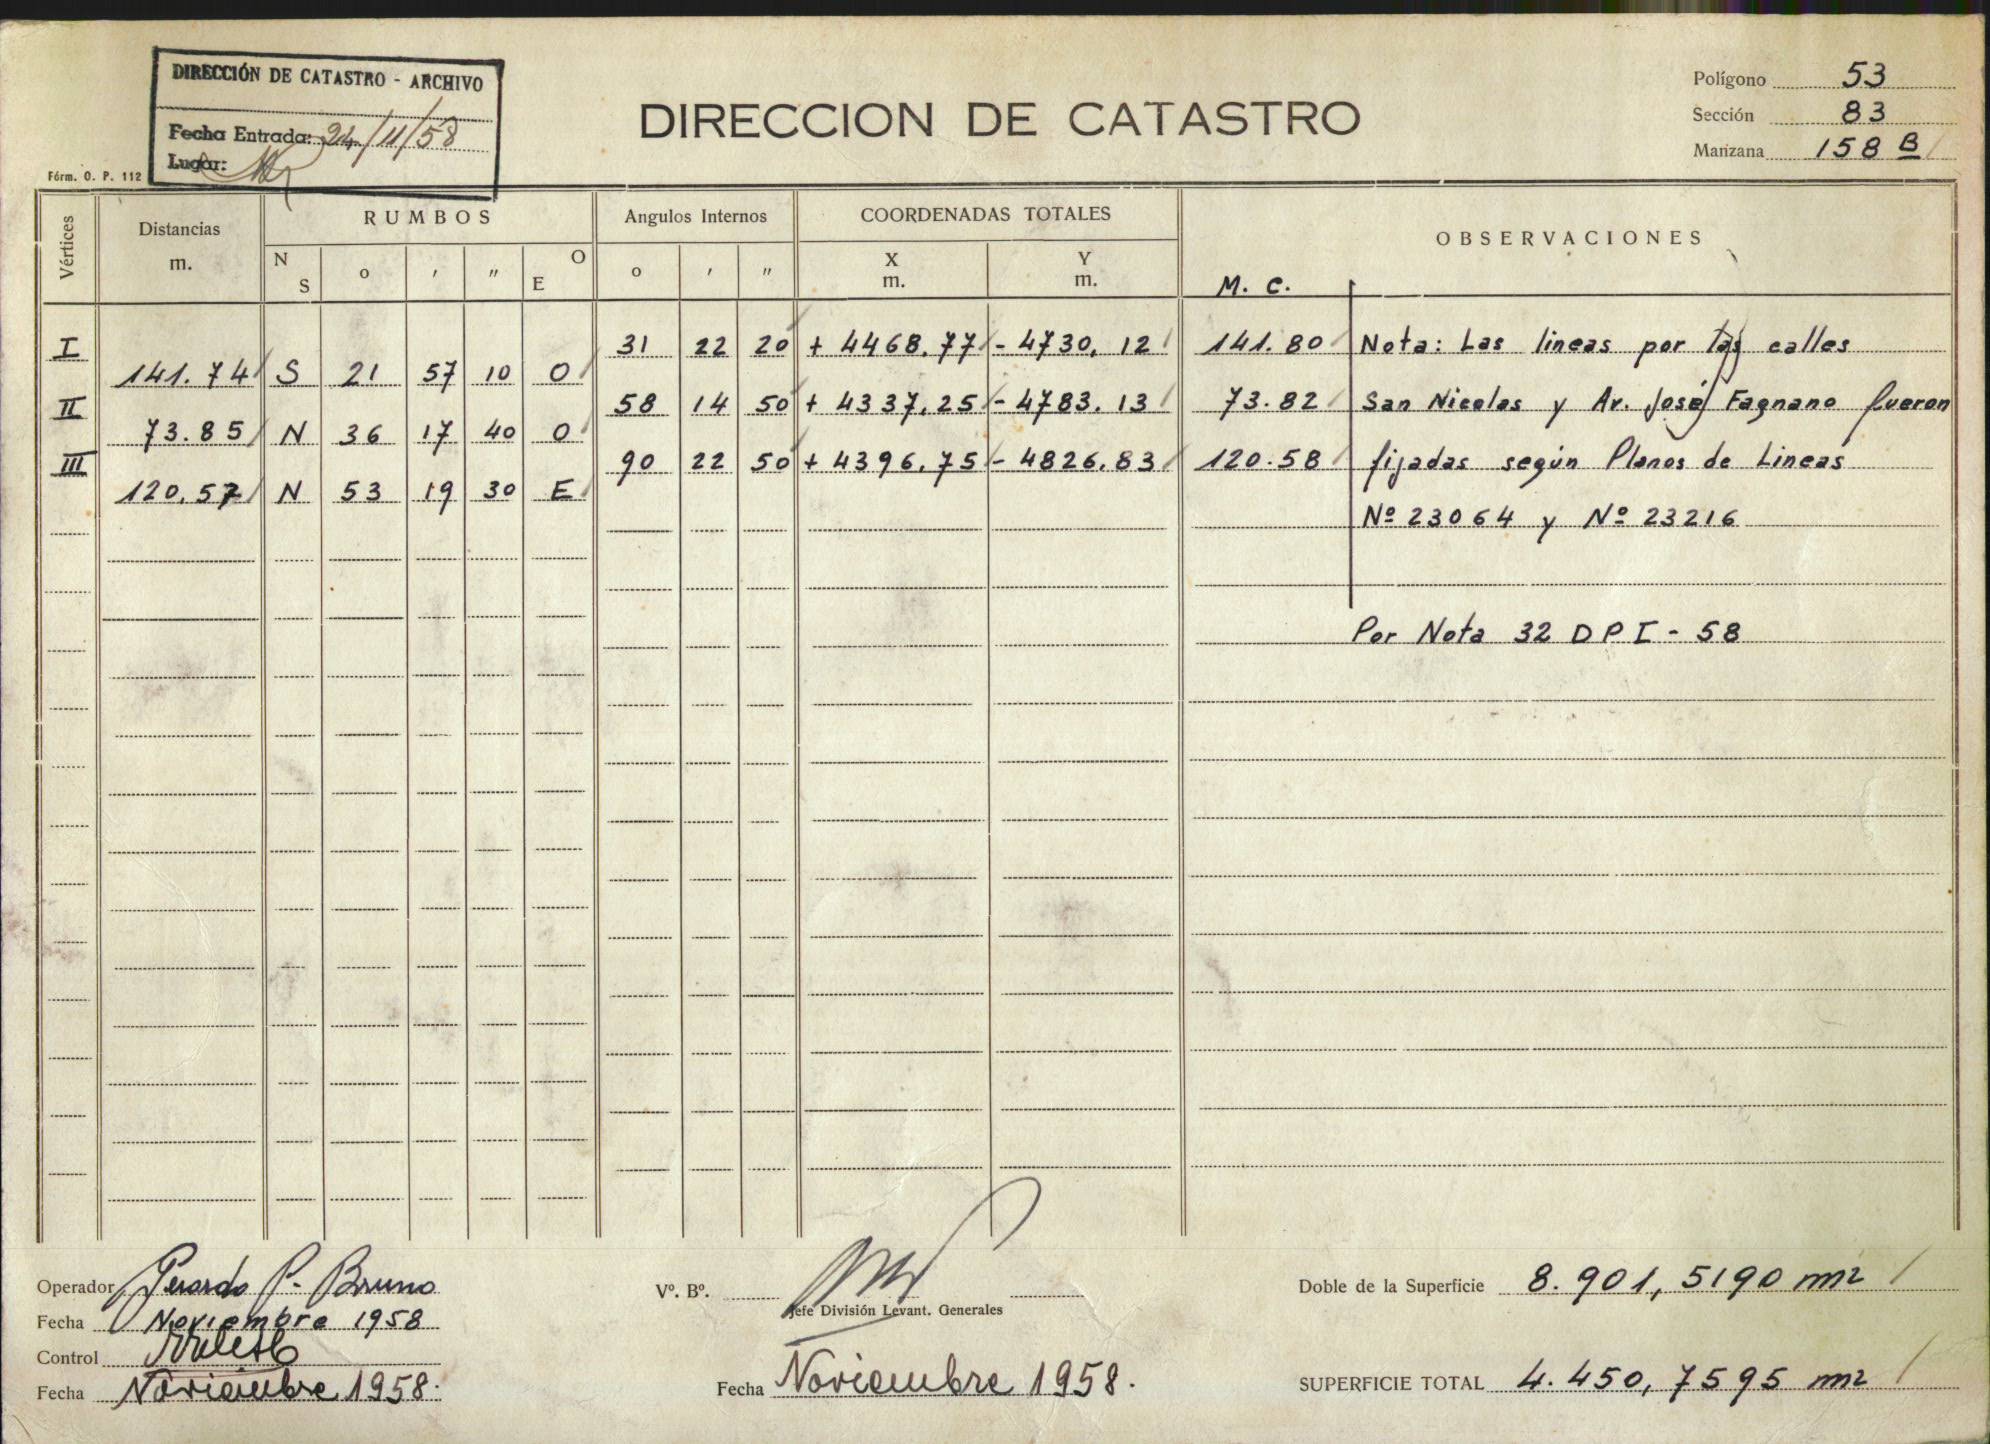 DIRECCIÓN DE CATASTRO - ARCHIVO
Fecha Entrada: 24/11/58
Lugar:
Fórm. O. P. 112
DIRECCION DE CATASTRO
Polígono 53
Sección 83
Manzana 158 B
Vértices Distancias m. RUMBOS Angulos Internos COORDENADAS TOTALES OBSERVACIONES
N S o ′ ″ O E o ′ ″ X m. Y m. M. C.
I 31 22 20 + 4468.77 - 4730,12 141.80 Nota: Las lineas por las calles
141.74 S 21 57 10 O
II 58 14 50 + 4337,25 - 4783.13 73.82 San Nicolas y Av. José Fagnano fueron
73.85 N 36 17 40 O
III 90 22 50 + 4396,75 - 4826.83 120.58 fijadas según Planos de Lineas
120,57 N 53 19 30 E
Nº 23064 y Nº 23216
Por Nota 32 DPI - 58
Operador Gerardo P. Bruno
Fecha Noviembre 1958
Control
Fecha Noviembre 1958.
Vº. Bº.
Jefe División Levant. Generales
Fecha Noviembre 1958.
Doble de la Superficie 8.901,5190 m2
SUPERFICIE TOTAL 4.450,7595 m2